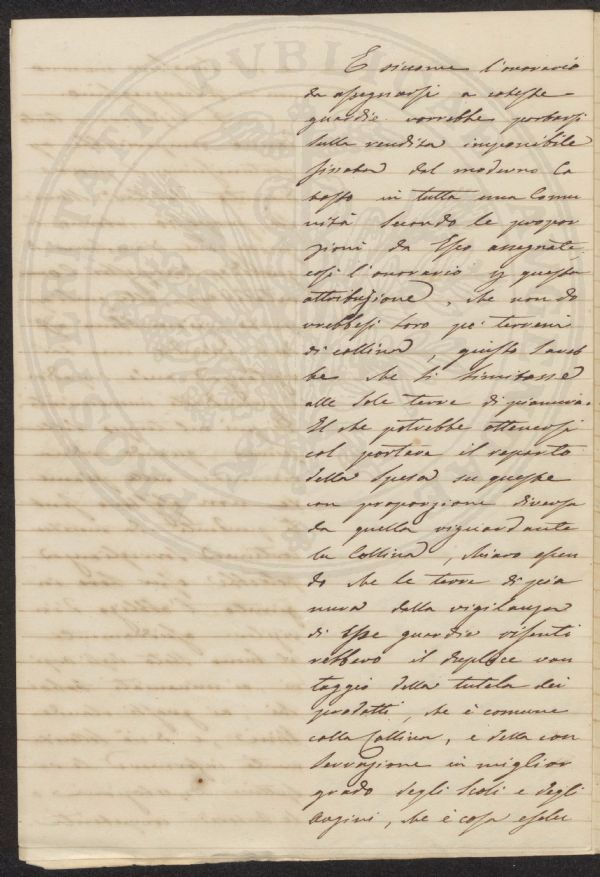 E siccome l'onorario
da assegnarsi a coteste
guardie vorrebbe portarsi
sulla rendita imponibile
fissata dal moderno Ca
tasto in tutta una Comu
nità secondo le propor
zioni da esso assegnate,
così l'onorario p questa
attribuzione, che non do
vrebbesi loro pe' terreni
di collina, giusto sareb
be che si limitasse
alle sole terre di pianura.
Il che potrebbe ottenersi
col portare il reparto
della spesa su queste
con proporzione diversa
da quella riguardante
la Collina, chiaro essen
do che le terre di pia
nura dalla vigilanza
di esse guardie risenti
rebbero il duplice van
taggio della tutela dei
prodotti, che è comune
colla Collina, e della con
servazione in miglior
grado degli scoli e degli
argini, che è cosa esclu
PROSPERITATI PVBLICAE